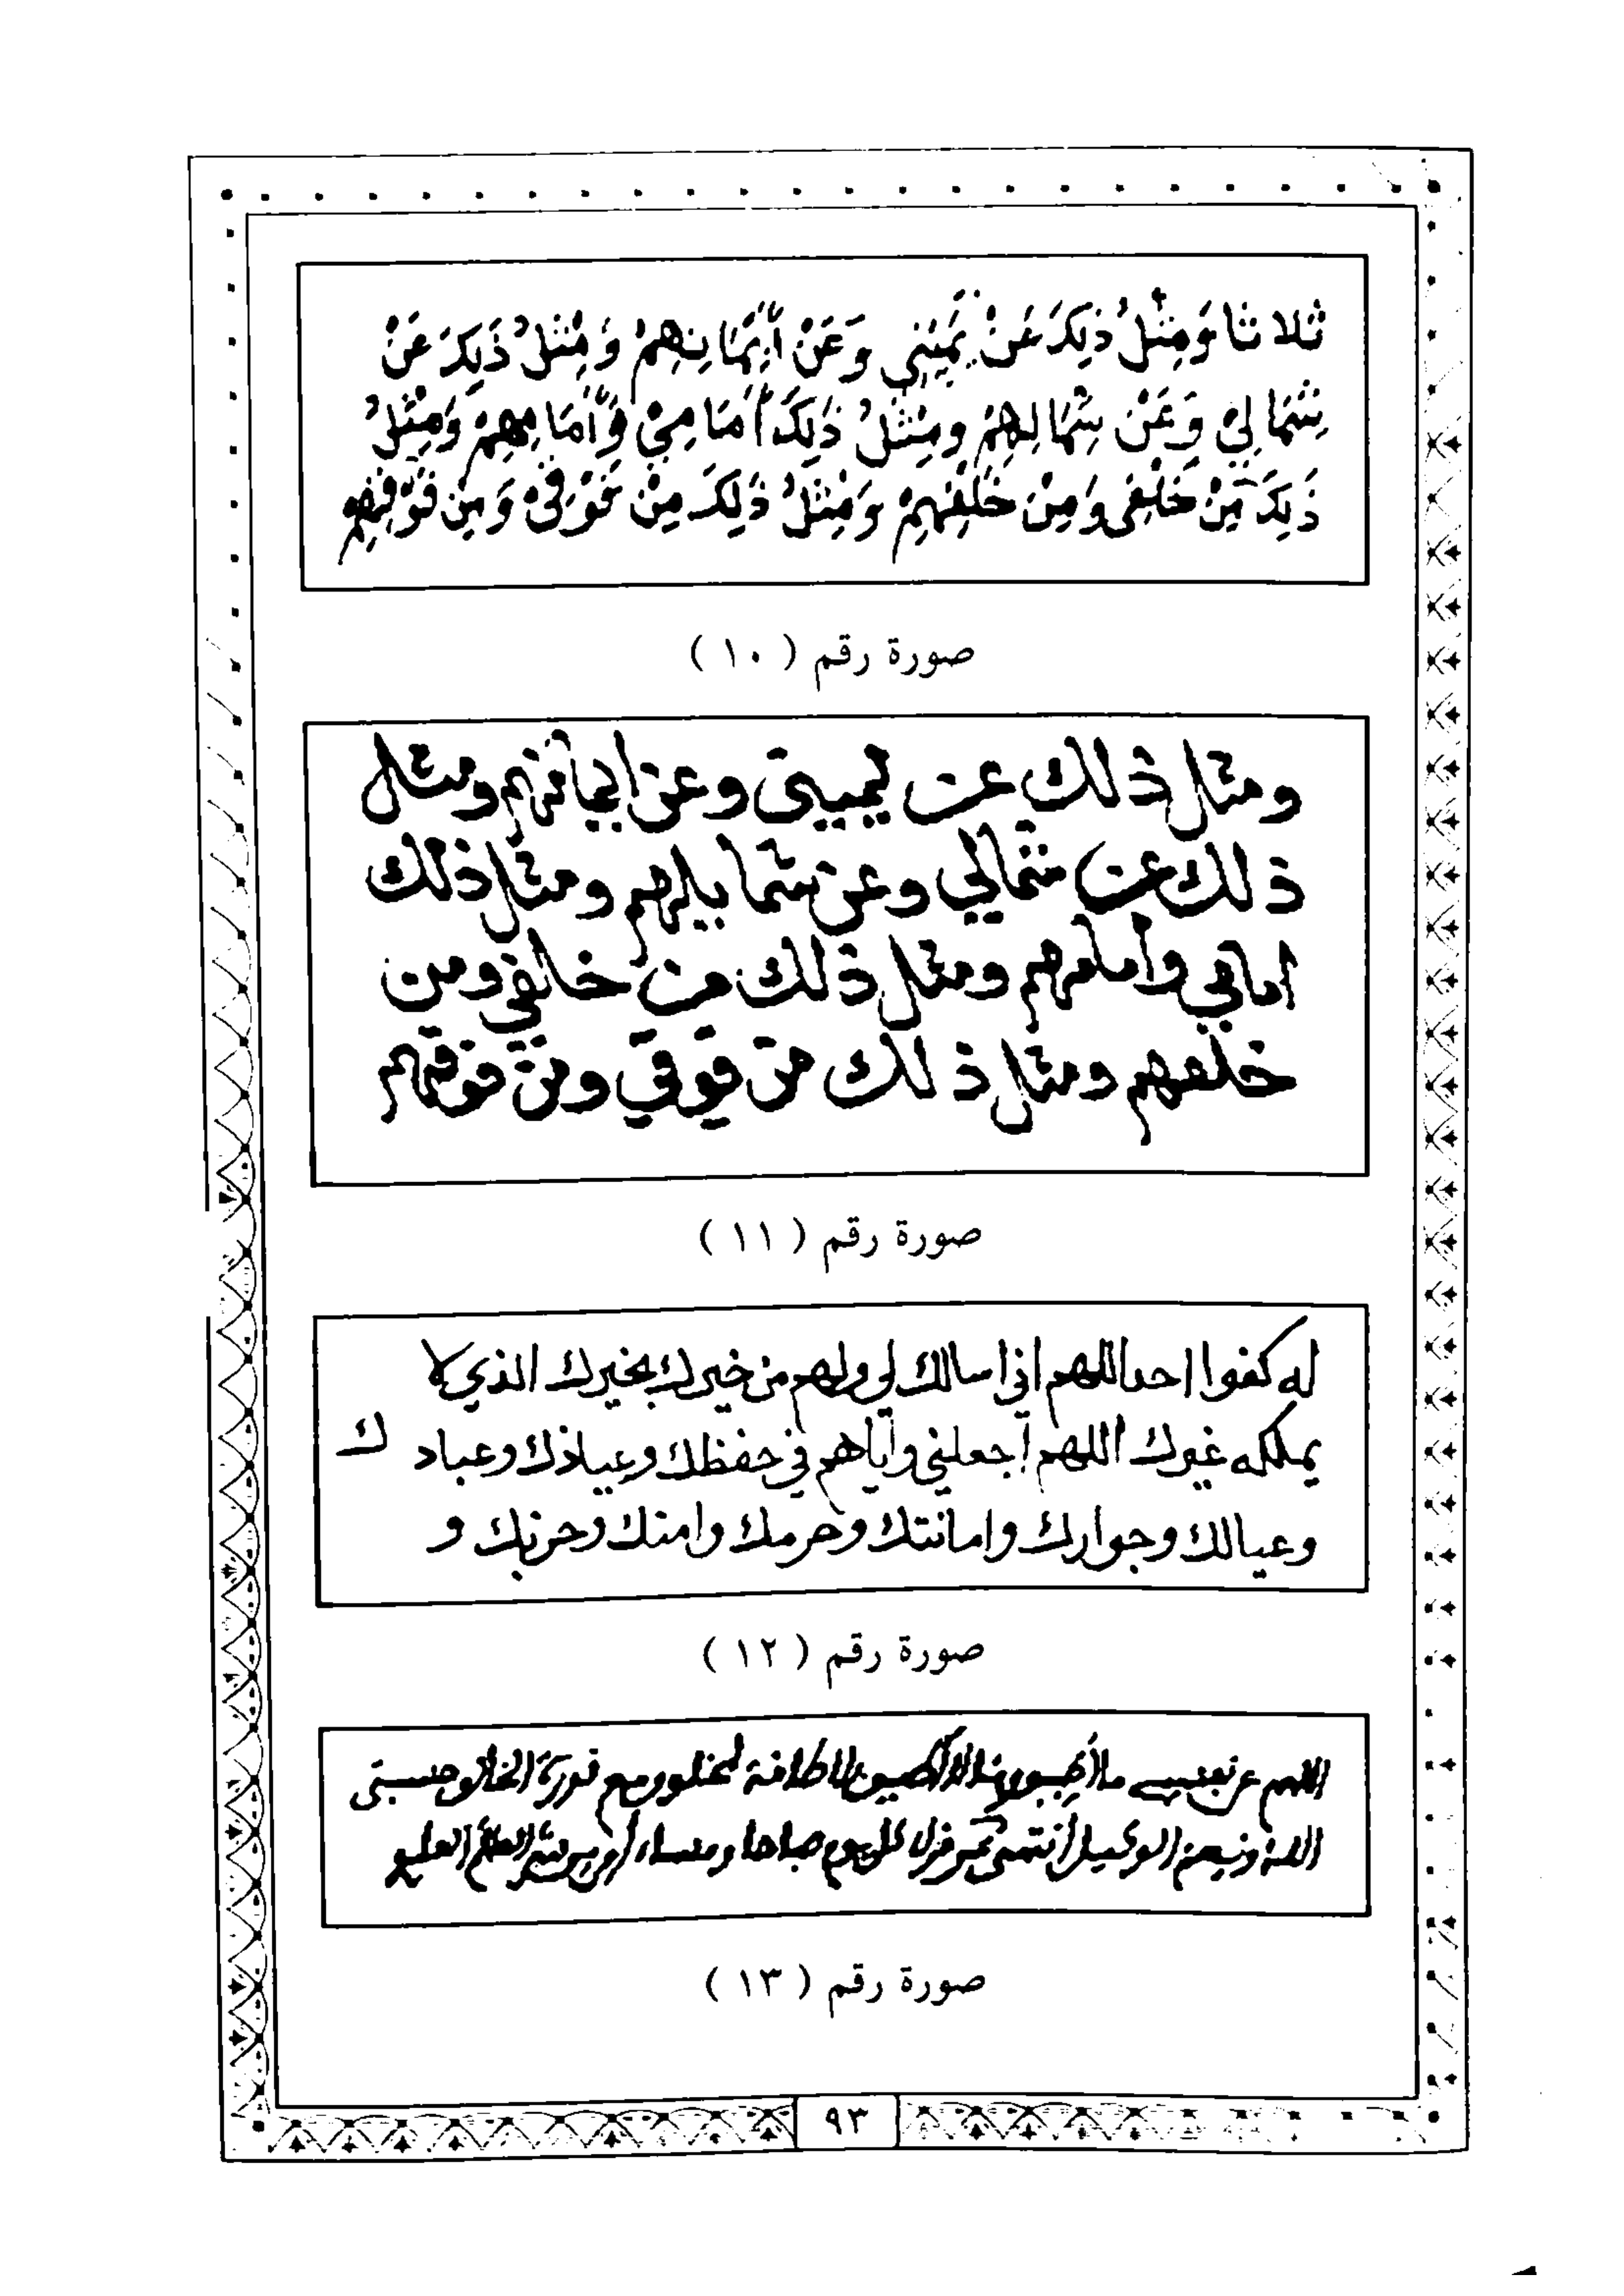 ثلاثا وَمِثْلُ ذَلِكَ عَنْ يَمِيْنِي وَعَنْ أَيْمَانِهِمْ وَمِثْلُ ذَلِكَ عَنْ
شِمَالِيْ وَعَنْ شِمَالِهِمْ وَمِثْلُ ذَلِكَ أَمَامِيْ وَأَمَامِهِمْ وَمِثْلُ
ذَلِكَ مِنْ خَلْفِى وَمِنْ خَلْفِهِمْ وَمِثْلُ ذَلِكَ مِنْ فَوْقِيْ وَمِنْ فَوْقِهِمْ
صورة رقم ( ١٠ )
ومثل ذلك عن يميني وعن ايمانهم ومثل
ذلك عن شمالي وعن شمايلهم ومثل ذلك
امامي وأمامهم ومثل ذلك من خلفي ومن
خلفهم ومثل ذلك من فوقي ومن فوقهم
صورة رقم ( ١١ )
له كفوا احد اللهم اني اسالك لي ولهم من خيرك بخيرك الذي لا
يملكه غيرك اللهم اجعلني واياهم في حفظك وعياذك وعبادك
وعيالك وجوارك وامانتك وحرمك وامنك وحزبك و
صورة رقم ( ١٢ )
اللهم لا طاقة لمخلوق مع قدرة الخالق حسبي
الله ونعم الوكيل كل يوم صباحا ومساء
صورة رقم ( ١٣ )
٩٣